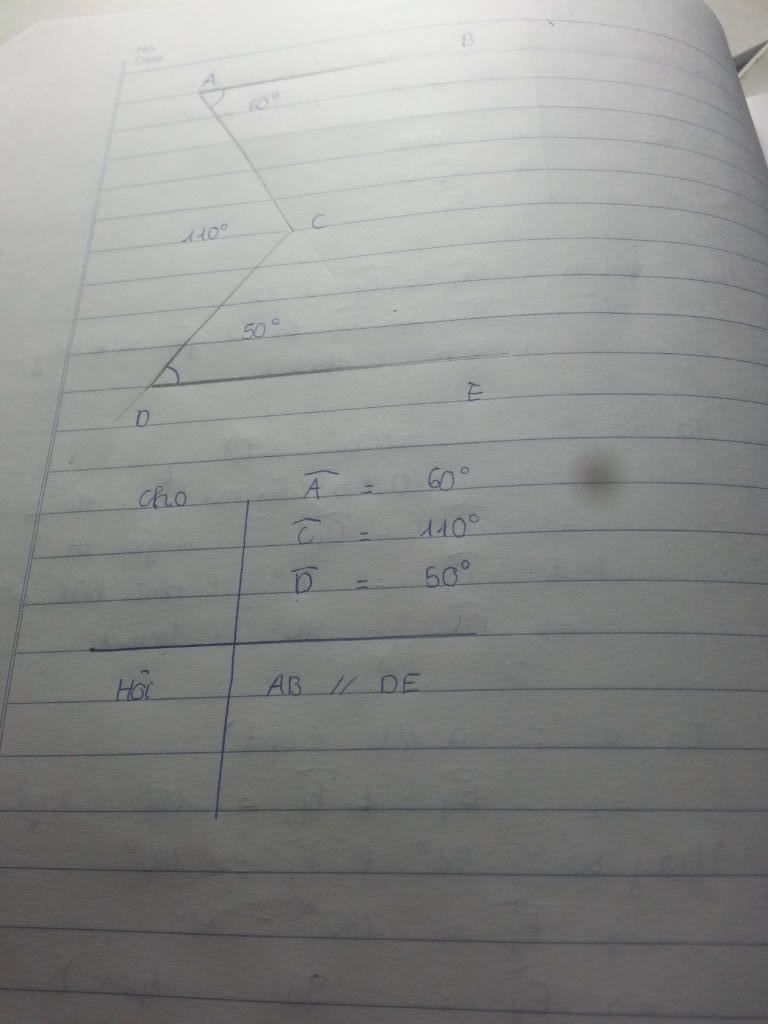 No.
Date
A B
60°
110° C
50°
D E
Cho Â = 60°
Ĉ = 110°
D̂ = 50°
Hỏi AB // DE